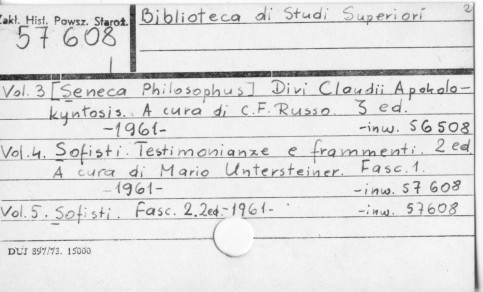 Zakł. Hist. Powsz. Staroż.
57 608
1
Biblioteca di Studi Superiori
2
Vol. 3 [Seneca Philosophus] Divi Claudii Apokolo-
kyntosis. A cura di C.F. Russo. 3 ed.
-1961- -inw. 56508
Vol. 4. Sofisti. Testimonianze e frammenti. 2 ed
A cura di Mario Untersteiner. Fasc. 1.
-1961- -inw. 57 608
Vol. 5. Sofisti. Fasc. 2. 2ed. -1961- -inw. 57608
DUJ 897/73. 15000